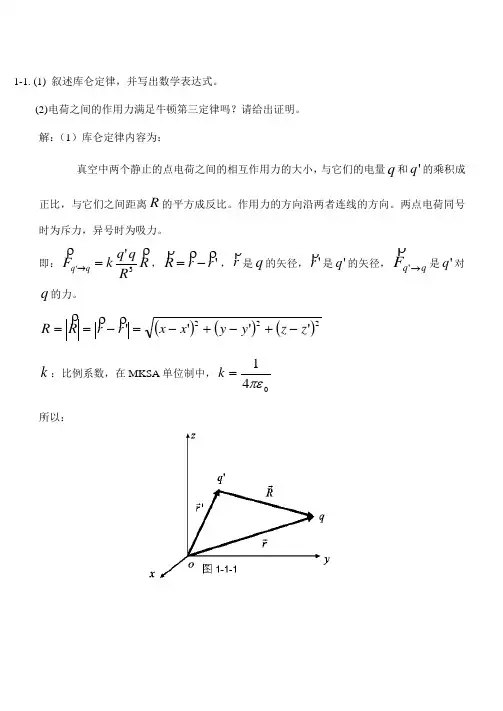 1-1. (1) 叙述库仑定律，并写出数学表达式。
(2)电荷之间的作用力满足牛顿第三定律吗？请给出证明。
解：（1）库仑定律内容为：
真空中两个静止的点电荷之间的相互作用力的大小，与它们的电量 q 和 q' 的乘积成
正比，与它们之间距离 R 的平方成反比。作用力的方向沿两者连线的方向。两点电荷同号
时为斥力，异号时为吸力。
即：F⃗_{q'→q} = k \frac{q'q}{R^3} R⃗，R⃗ = r⃗ − r⃗'，r⃗ 是 q 的矢径，r⃗' 是 q' 的矢径，F⃗_{q'→q} 是 q' 对
q 的力。
R = |R⃗| = |r⃗ − r⃗'| = \sqrt{(x − x')^2 + (y − y')^2 + (z − z')^2}
k：比例系数，在 MKSA 单位制中，k = \frac{1}{4πε_0}
所以：
z
q'
R⃗
r⃗'
q
r⃗
y
o
x
图 1-1-1